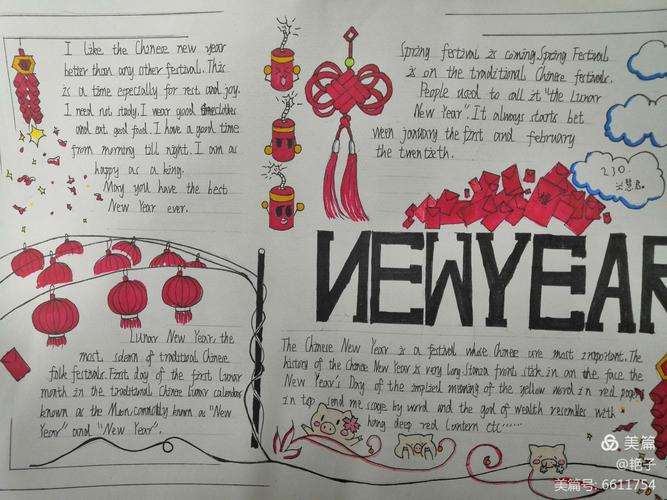 I like the Chinese new year
better than any other festival. This
is a time especially for rest and joy.
I need not study. I wear good clothes
and eat good food. I have a good time
from morning till night. I am as
happy as a king.
May you have the best
New Year ever.
Spring festival is coming. Spring Festival
is on the traditional Chinese festivals.
People used to call it "the Lunar
New Year". It always starts bet
ween january the first and february
the twentieth.
210.
NEWYEAR
Lunar New Year, the
most solemn of traditional Chinese
folk festivals. First day of the first lunar
month in the traditional Chinese lunar calendar
known as the Moon, commonly known as "New
Year" and "New Year".
The Chinese New Year is a festival whose Chinese are most important. The
history of the Chinese New Year is very long. Stanza front stick in on the face the
New Year's Day of the implied meaning of the yellow word in red paper
in top send me, scope by word and the god of wealth resembles with
hang deep red lantern etc......
美篇
@艳子
美篇号: 6611754